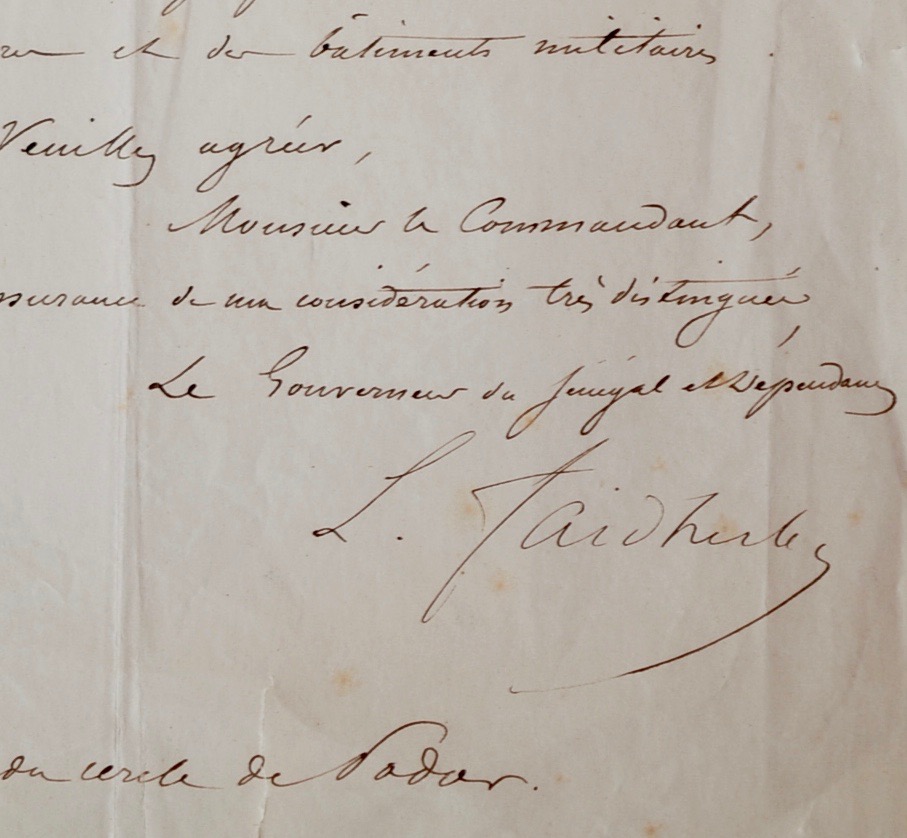 et des bâtiments militaires.
Veuillez agréer,
Monsieur le Commandant,
ssurance de ma considération très distinguée
Le Gouverneur du Sénégal et Dépendances
L. Faidherbe
du cercle de Podor.